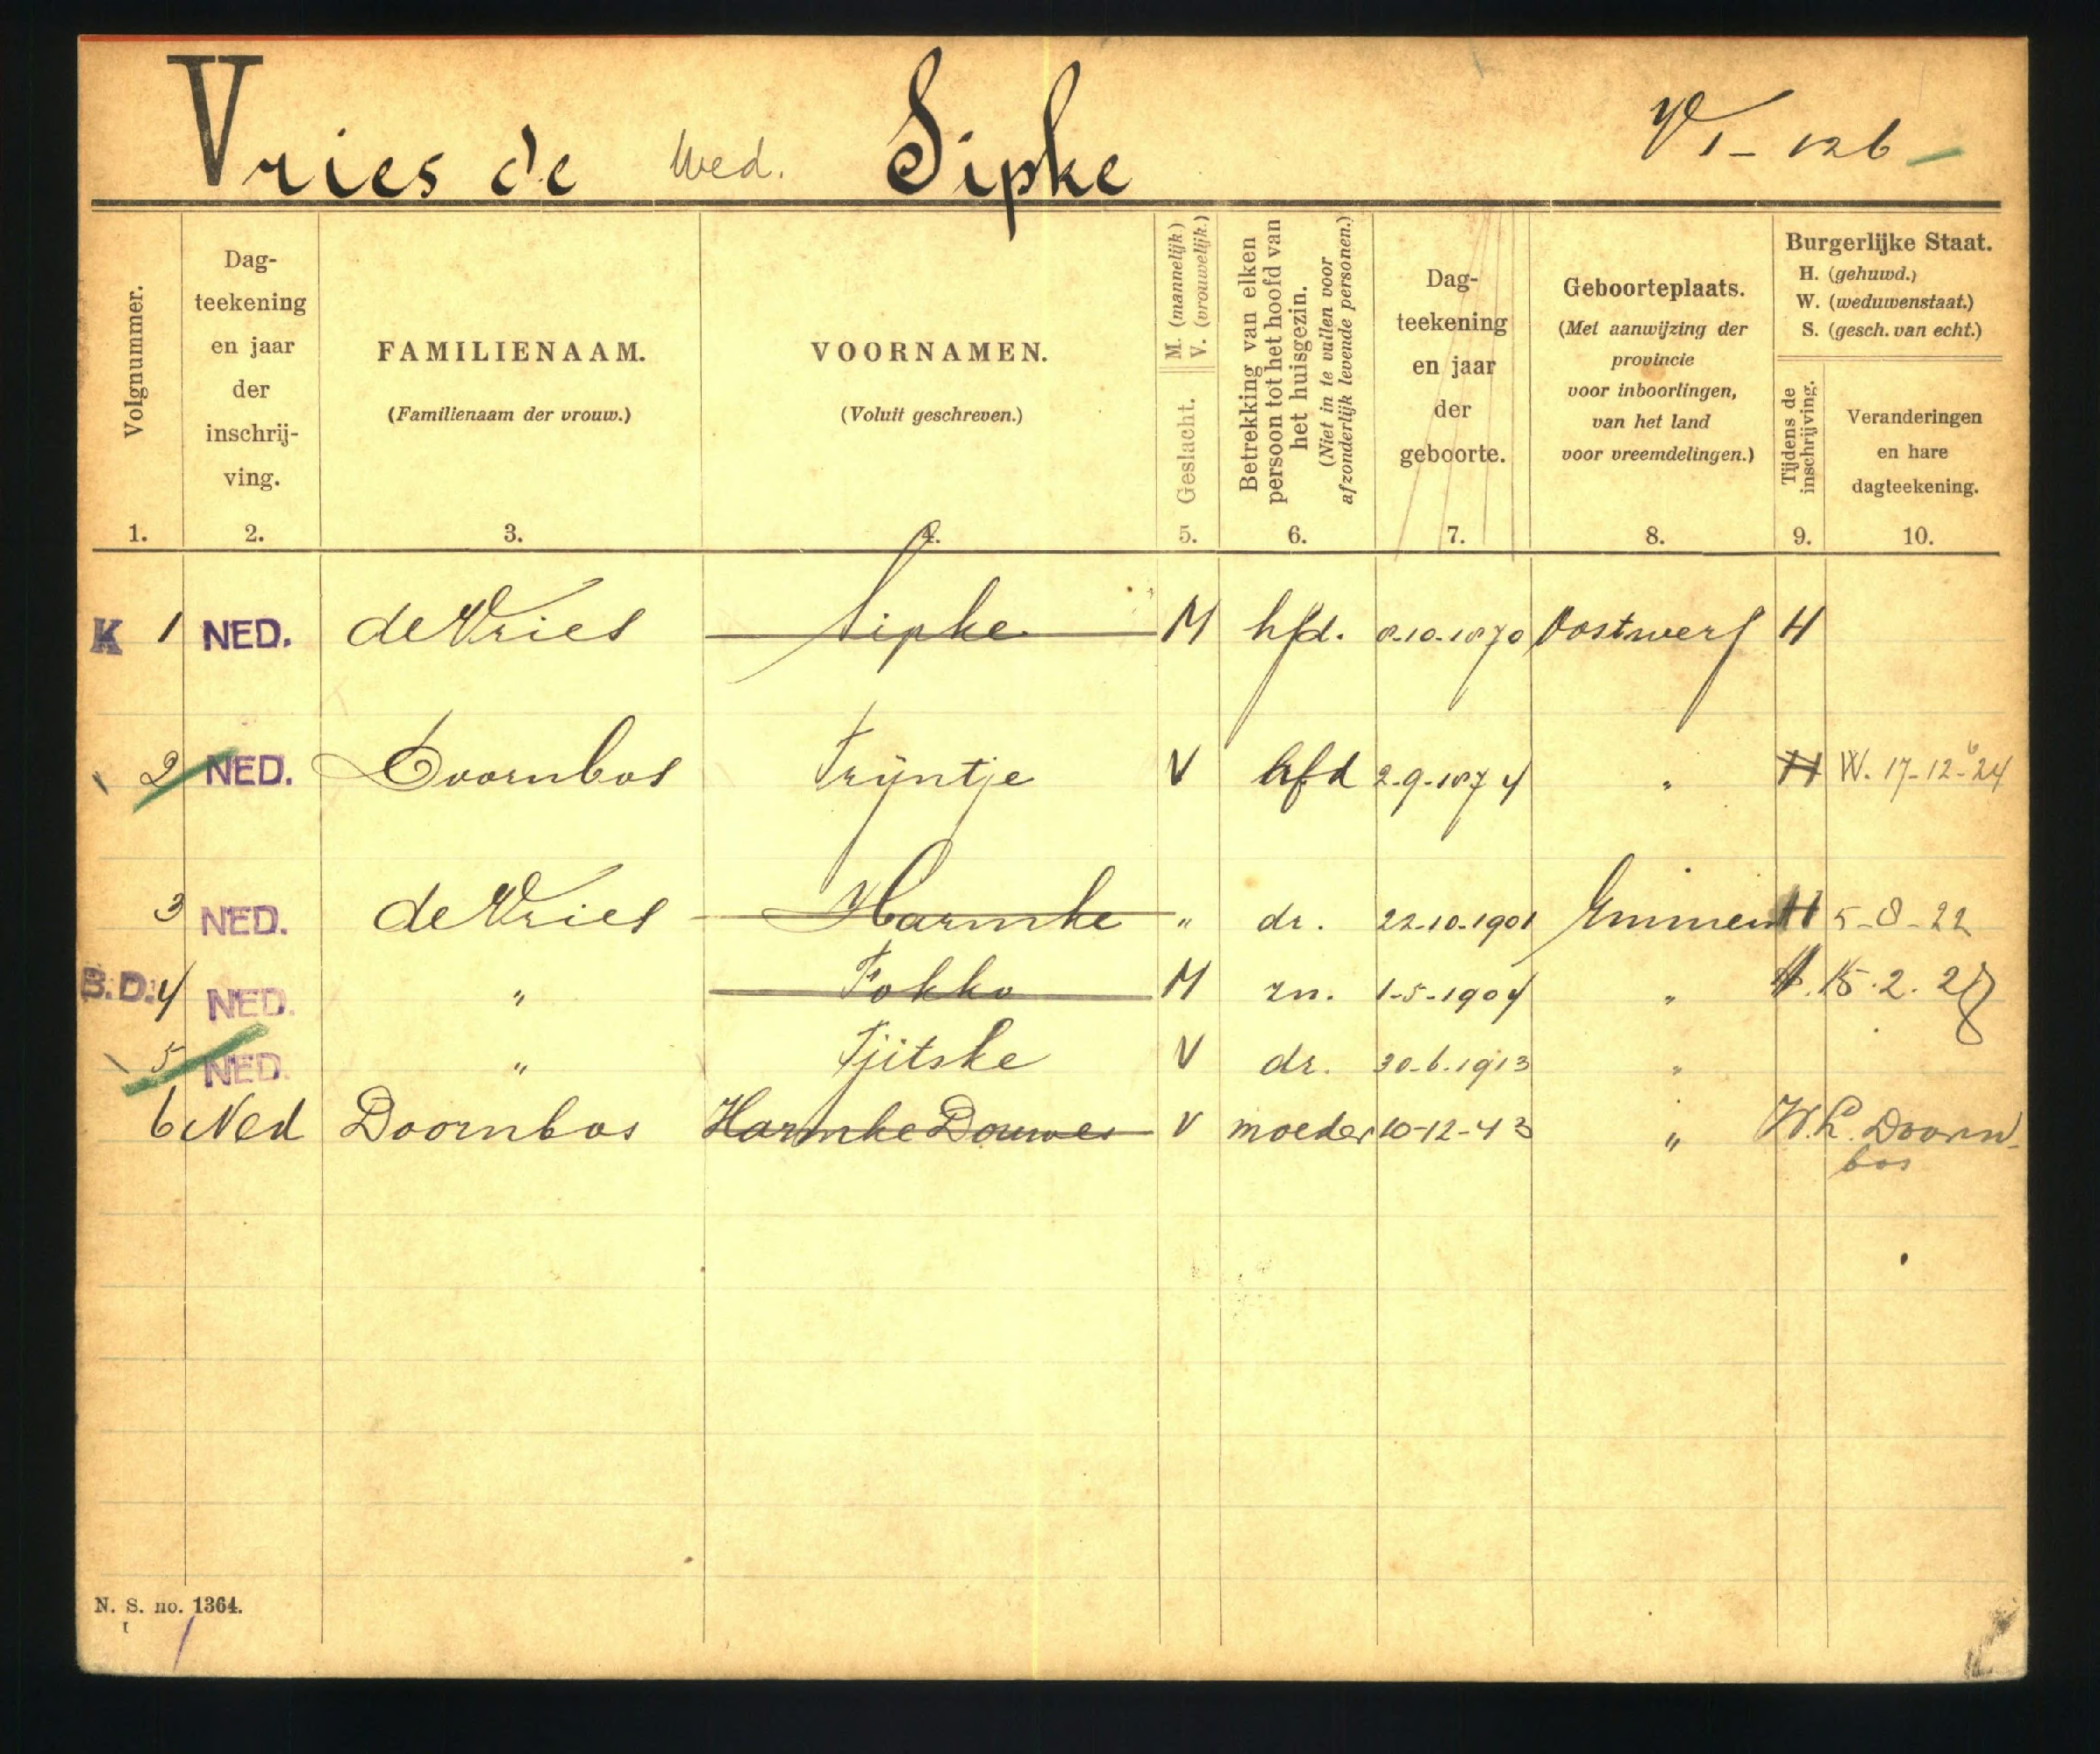 Vries de wed. Sipke VI - 126
Volgnummer.
1.
Dag-
teekening
en jaar
der
inschrij-
ving.
2.
FAMILIENAAM.
(Familienaam der vrouw.)
3.
VOORNAMEN.
(Voluit geschreven.)
4.
M. (mannelijk)
V. (vrouwelijk.)
Geslacht.
5.
Betrekking van elken
persoon tot het hoofd van
het huisgezin.
(Niet in te vullen voor
afzonderlijk levende personen.)
6.
Dag-
teekening
en jaar
der
geboorte.
7.
Geboorteplaats.
(Met aanwijzing der
provincie
voor inboorlingen,
van het land
voor vreemdelingen.)
8.
Burgerlijke Staat.
H. (gehuwd.)
W. (weduwenstaat.)
S. (gesch. van echt.)
Tijdens de
inschrijving.
9.
Veranderingen
en hare
dagteekening.
10.
K 1 NED. de Vries Sipke M hfd. 8-10-1870 Oostwerf H
2 NED. Doornbos Trijntje V hfd 2-9-1874 " H W. 17-12-'24
3 NED. de Vries Harmke " dr. 22-10-1901 Emmen H 5-8-22
B.D. 4 NED. " Fokko M zn. 1-5-1904 " H. 15.2.28
5 NED. " Tjitske V dr. 30-6-1913 "
6 Ned Doornbos Harmke Douwes V moeder 10-12-43 " W. L. Doorn-
bos
N. S. no. 1364.